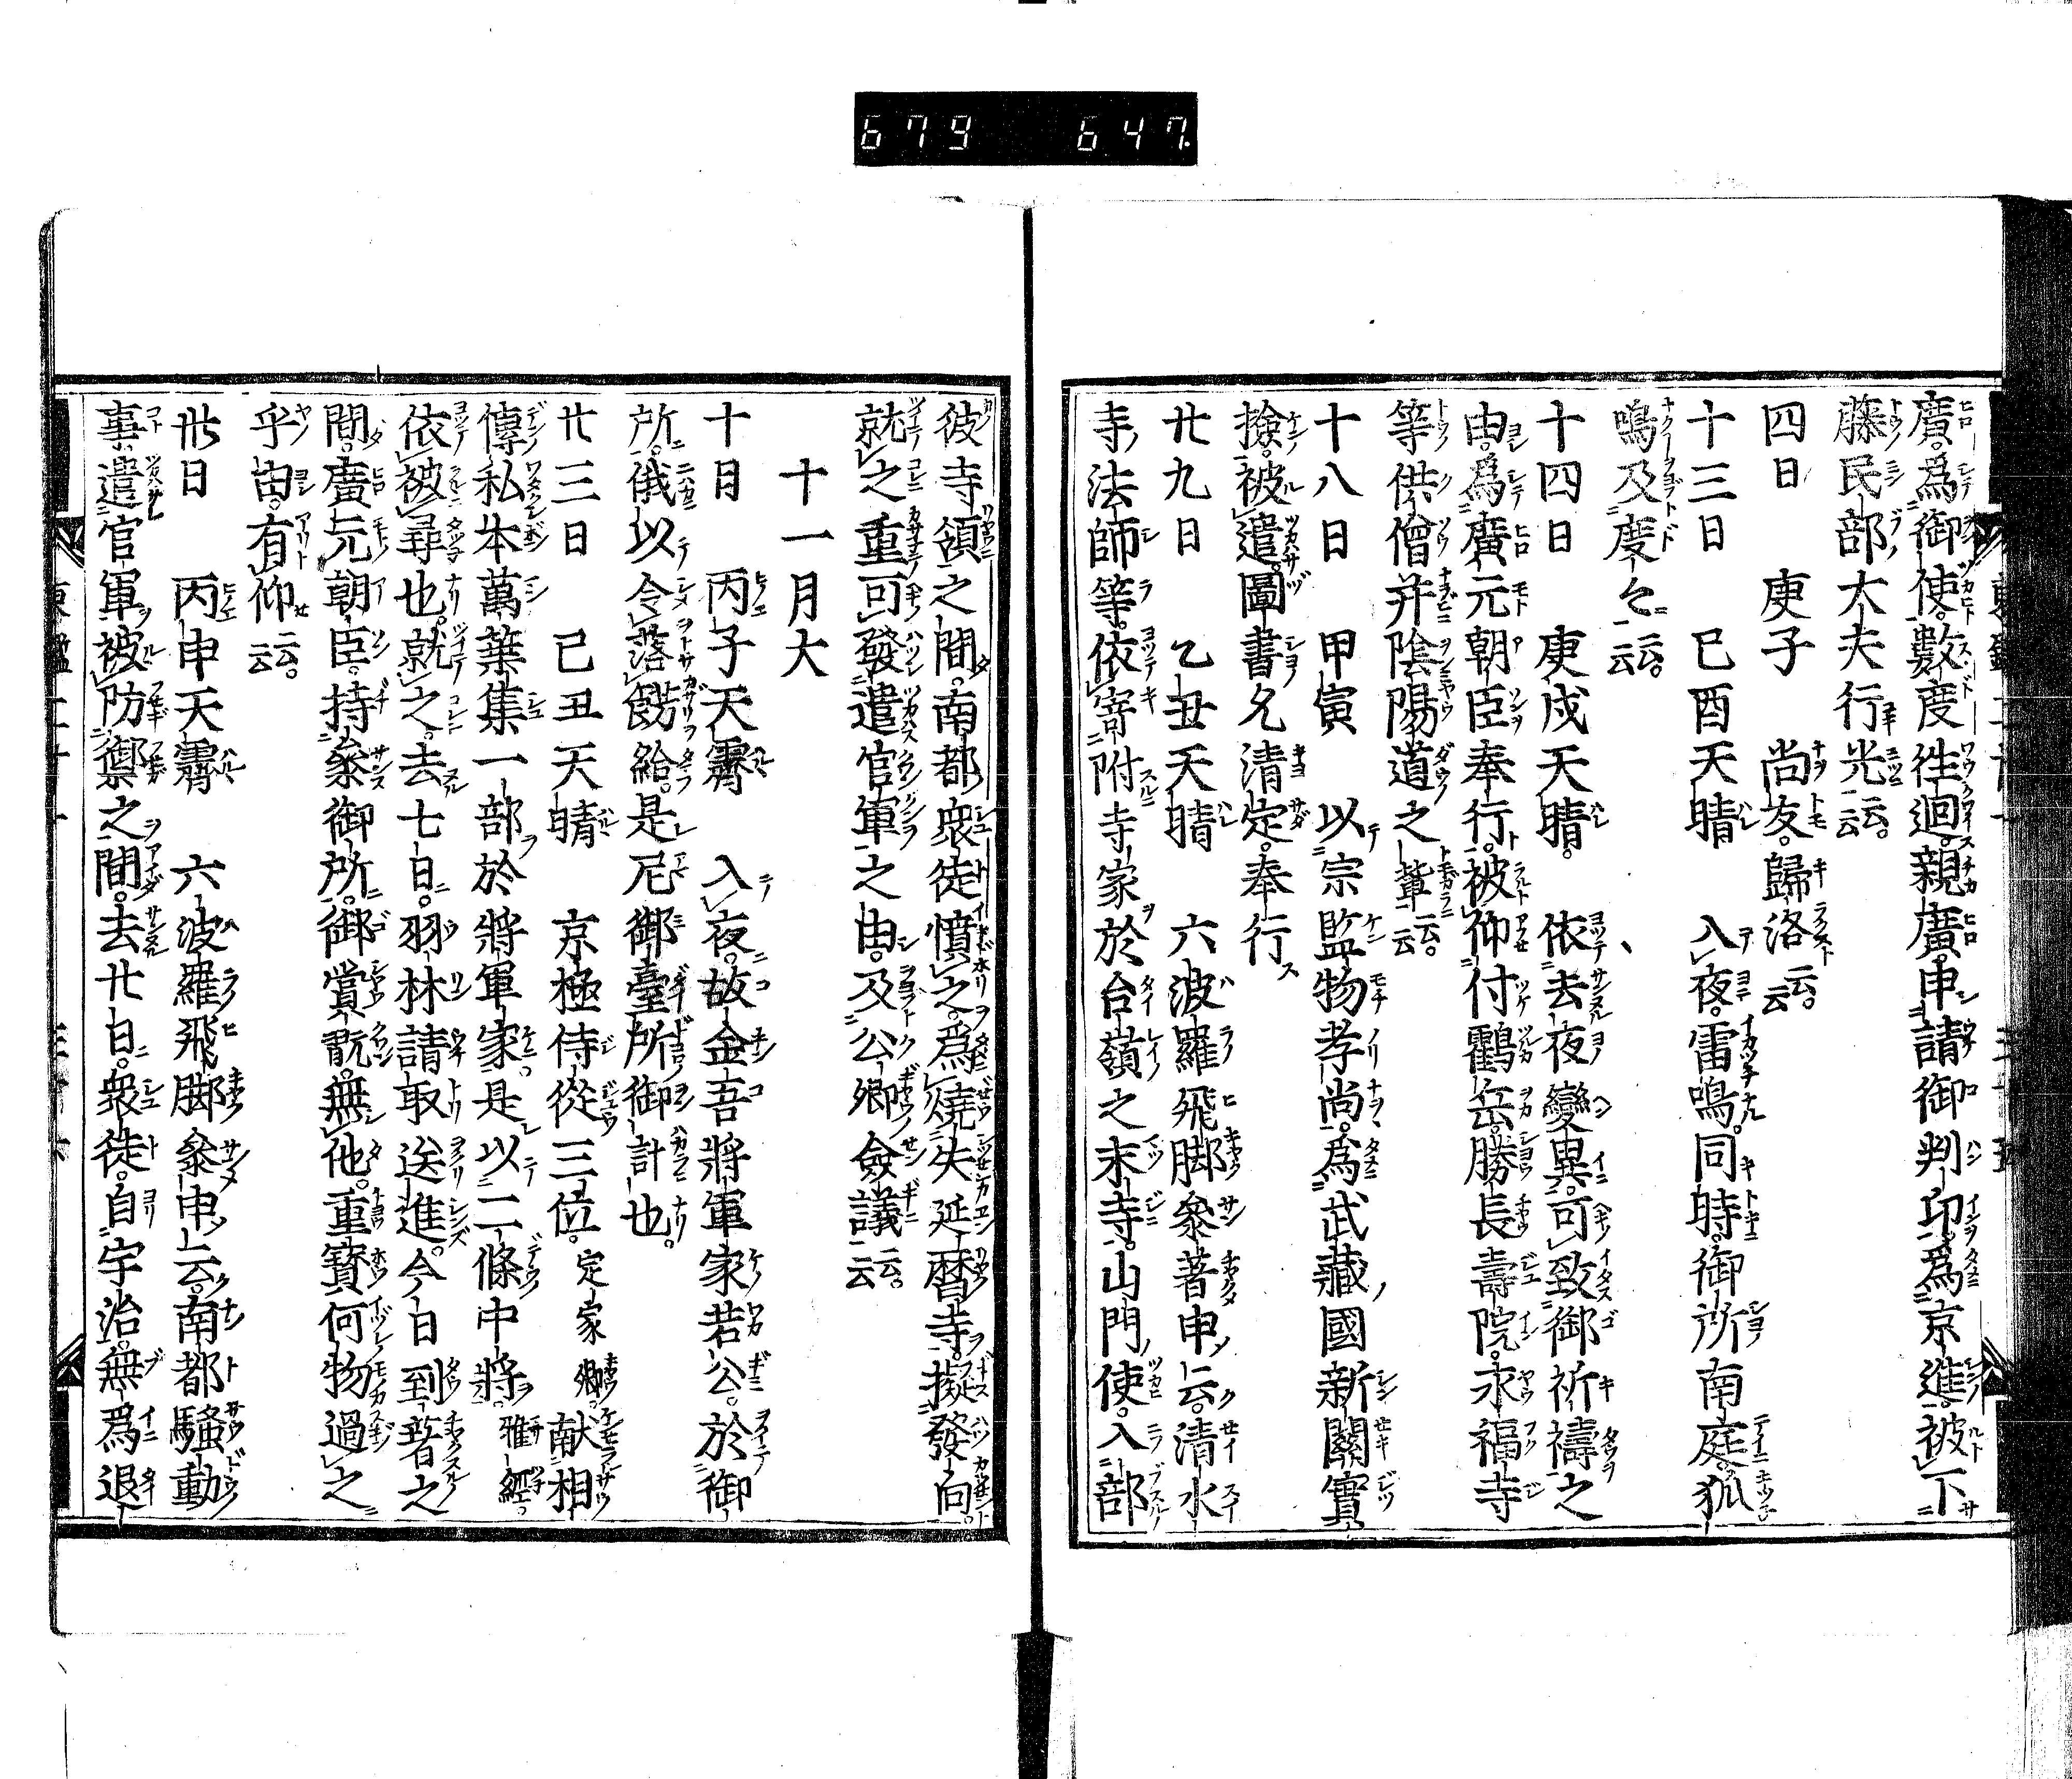 679 647.
廣。爲御使。數度往迴。親廣。申請御判印。爲京進。被下
藤民部大夫行光云云。
四日 庚子 尚友。歸洛云云。
十三日 巳酉天晴 入夜。雷鳴。同時。御所南庭。狐
鳴及度々云云。
十四日 庚戌天晴。 依去夜變異。可致御祈禱之
由。爲廣元朝臣奉行。被仰付鸖岳。勝長壽院。永福寺
等供僧并陰陽道之輩云云。
十八日 甲寅 以宗監物孝尚。爲武藏國新關實
撿。被遣。圖書允清定。奉行
廿九日 乙丑天晴 六波羅飛脚參著申云。清水
寺法師等。依寄附寺家於台嶺之末寺。山門使。入部
彼寺領之間。南都衆徒憤之。爲燒失延曆寺。擬發向。
就之重可發遣官軍之由。及公卿僉議云云。
十一月大
十日 丙子天霽 入夜。故金吾將軍家若公。於御
所。俄以令落餝給。是尼御臺所御計也。
廿三日 己丑天晴 京極侍從三位。定家卿。献相
傳私本萬葉集一部於將軍家。是以二條中將。雅經。
依被尋也。就之。去七日。羽林請取送進。今日到著之
間。廣元朝臣。持參御所。御賞翫。無他。重寳何物過之
乎由。有仰云云。
卅日 丙申天霽 六波羅飛脚參申云。南都騷動
事。遣官軍。被防禦之間。去廿日。衆徒。自宇治。無爲退